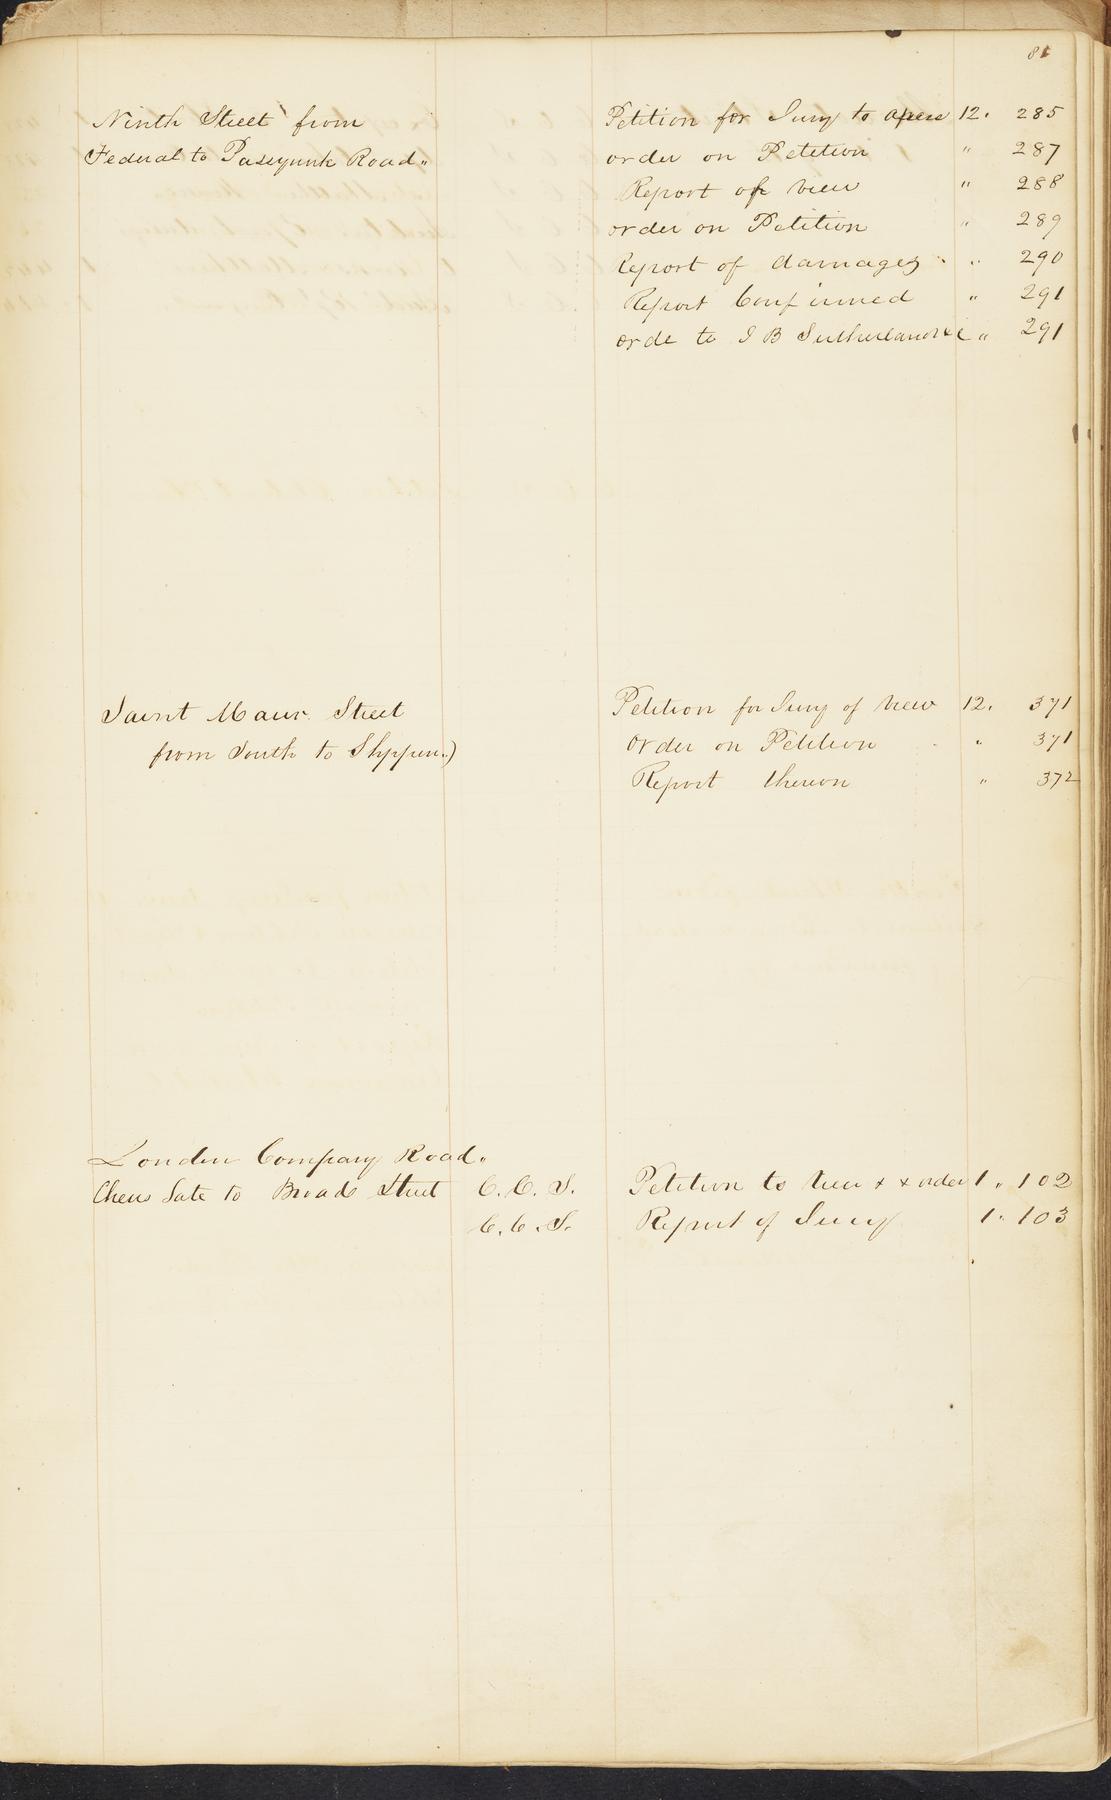 81
Ninth Street from Petition for Jury to open 12. 285
Federal to Passyunk Road " order on Petition " 287
Report of view " 288
order on Petition " 289
Report of damages " 290
Report Confirmed " 291
orde to J B Sutherland &c " 291
Saint Maur. Street Petition for Jury of View 12. 371
from South to Shippen.) Order on Petition " 371
Report thereon " 372
London Company Road.
to Broad Street C. C. S. Petition to View & & order 1. 102
C. C. S. Report of Jury 1. 103